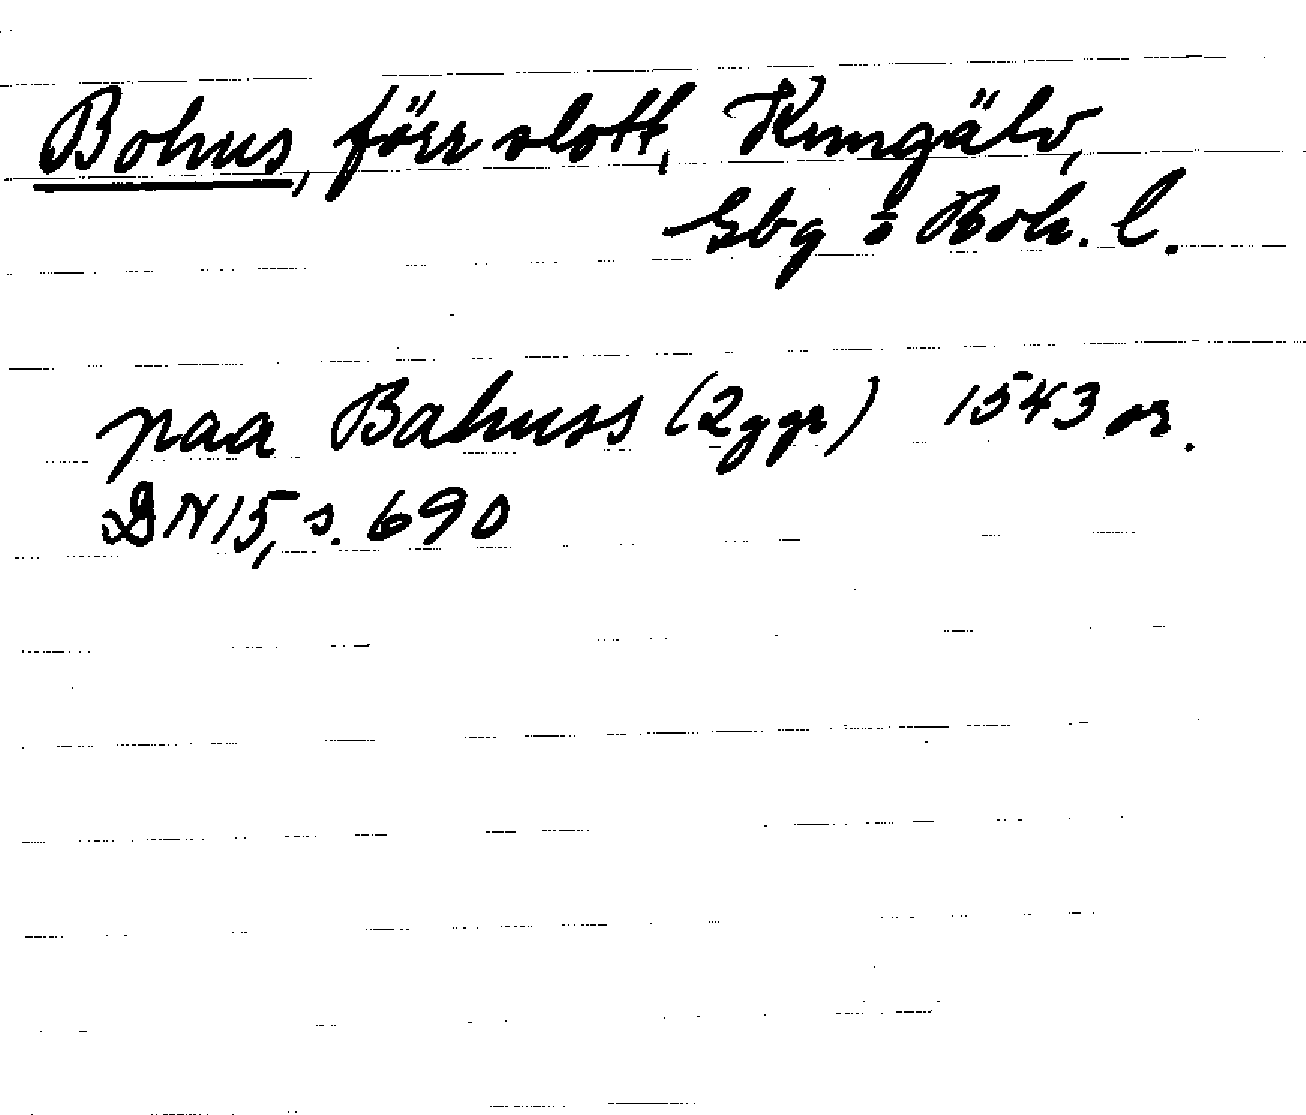 Bohus, förr slott, Kungälv,
Gbg o Boh. l.
paa Bahuss (2 ggr) 1543 or.
DN 15, s. 690